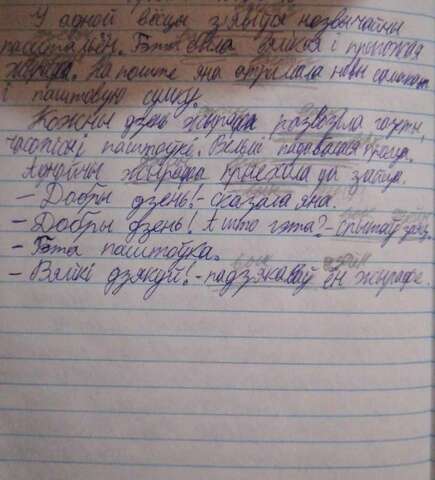 У адной вёсцы з'явіўся незвычайны
пасстальён. Гэта была вялікая і прыгожая
жырафа. На пошце яна атрымала новы самакат
і паштовую сумку.
Кожны дзень жырафа развозіла газеты,
часопісы і паштоўкі. Вельмі падабалася праца.
Аднойчы жырафа прыехала да зайца.
– Добры дзень! – сказала яна.
– Добры дзень! А што гэта? – спытаў заяц.
– Гэта паштоўка.
– Вялікі дзякуй! – падзякаваў ён жырафе.